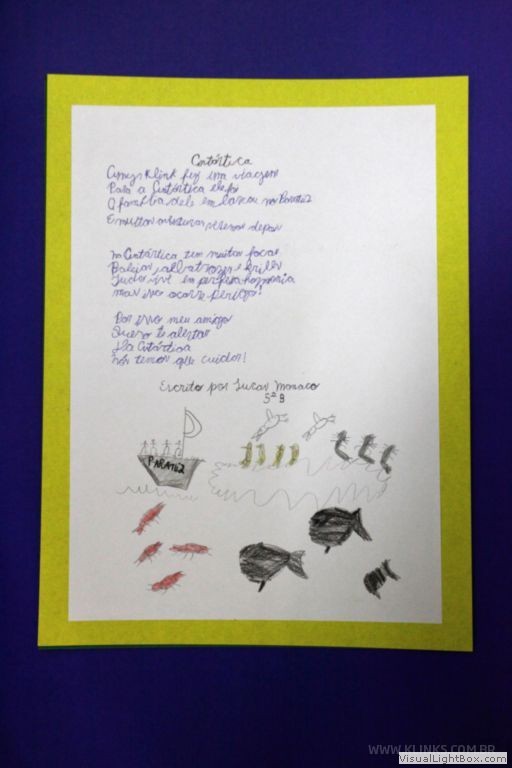 Antártica
Amyr Klink fez uma viagem
Para a Antártica ele foi
A família dele embarcou no Parati2
E muitas aventuras vieram depois
na Antártica tem muitas focas
Baleias, albatrozes e krills
Tudo vive em perfeita harmonia
mas isso ocorre perigo!
Por isso meu amigo
Quero te alertar
Da Antártica
Nós temos que cuidar!
Escrito por Lucas Monaco
5ª B
PARATI2
WWW.KLINKS.COM.BR
VisualLightBox.com